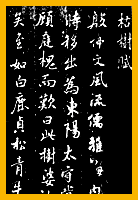 枯樹賦
殷仲文風流儒雅海內
時移出為東陽太守常
顧庭槐而歎曰此樹婆娑
矣至如白鹿貞松青牛